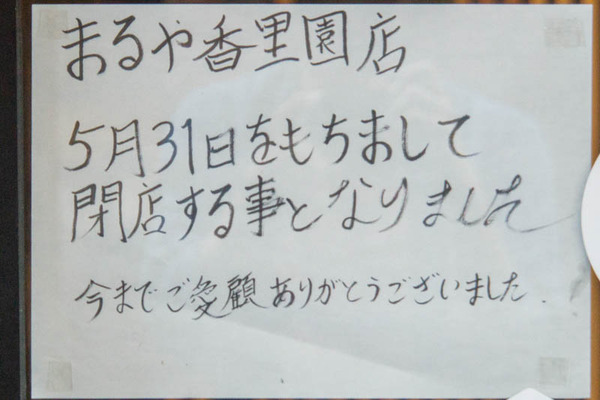 まるや香里園店
5月31日をもちまして
閉店する事となりました
今までご愛顧ありがとうございました.